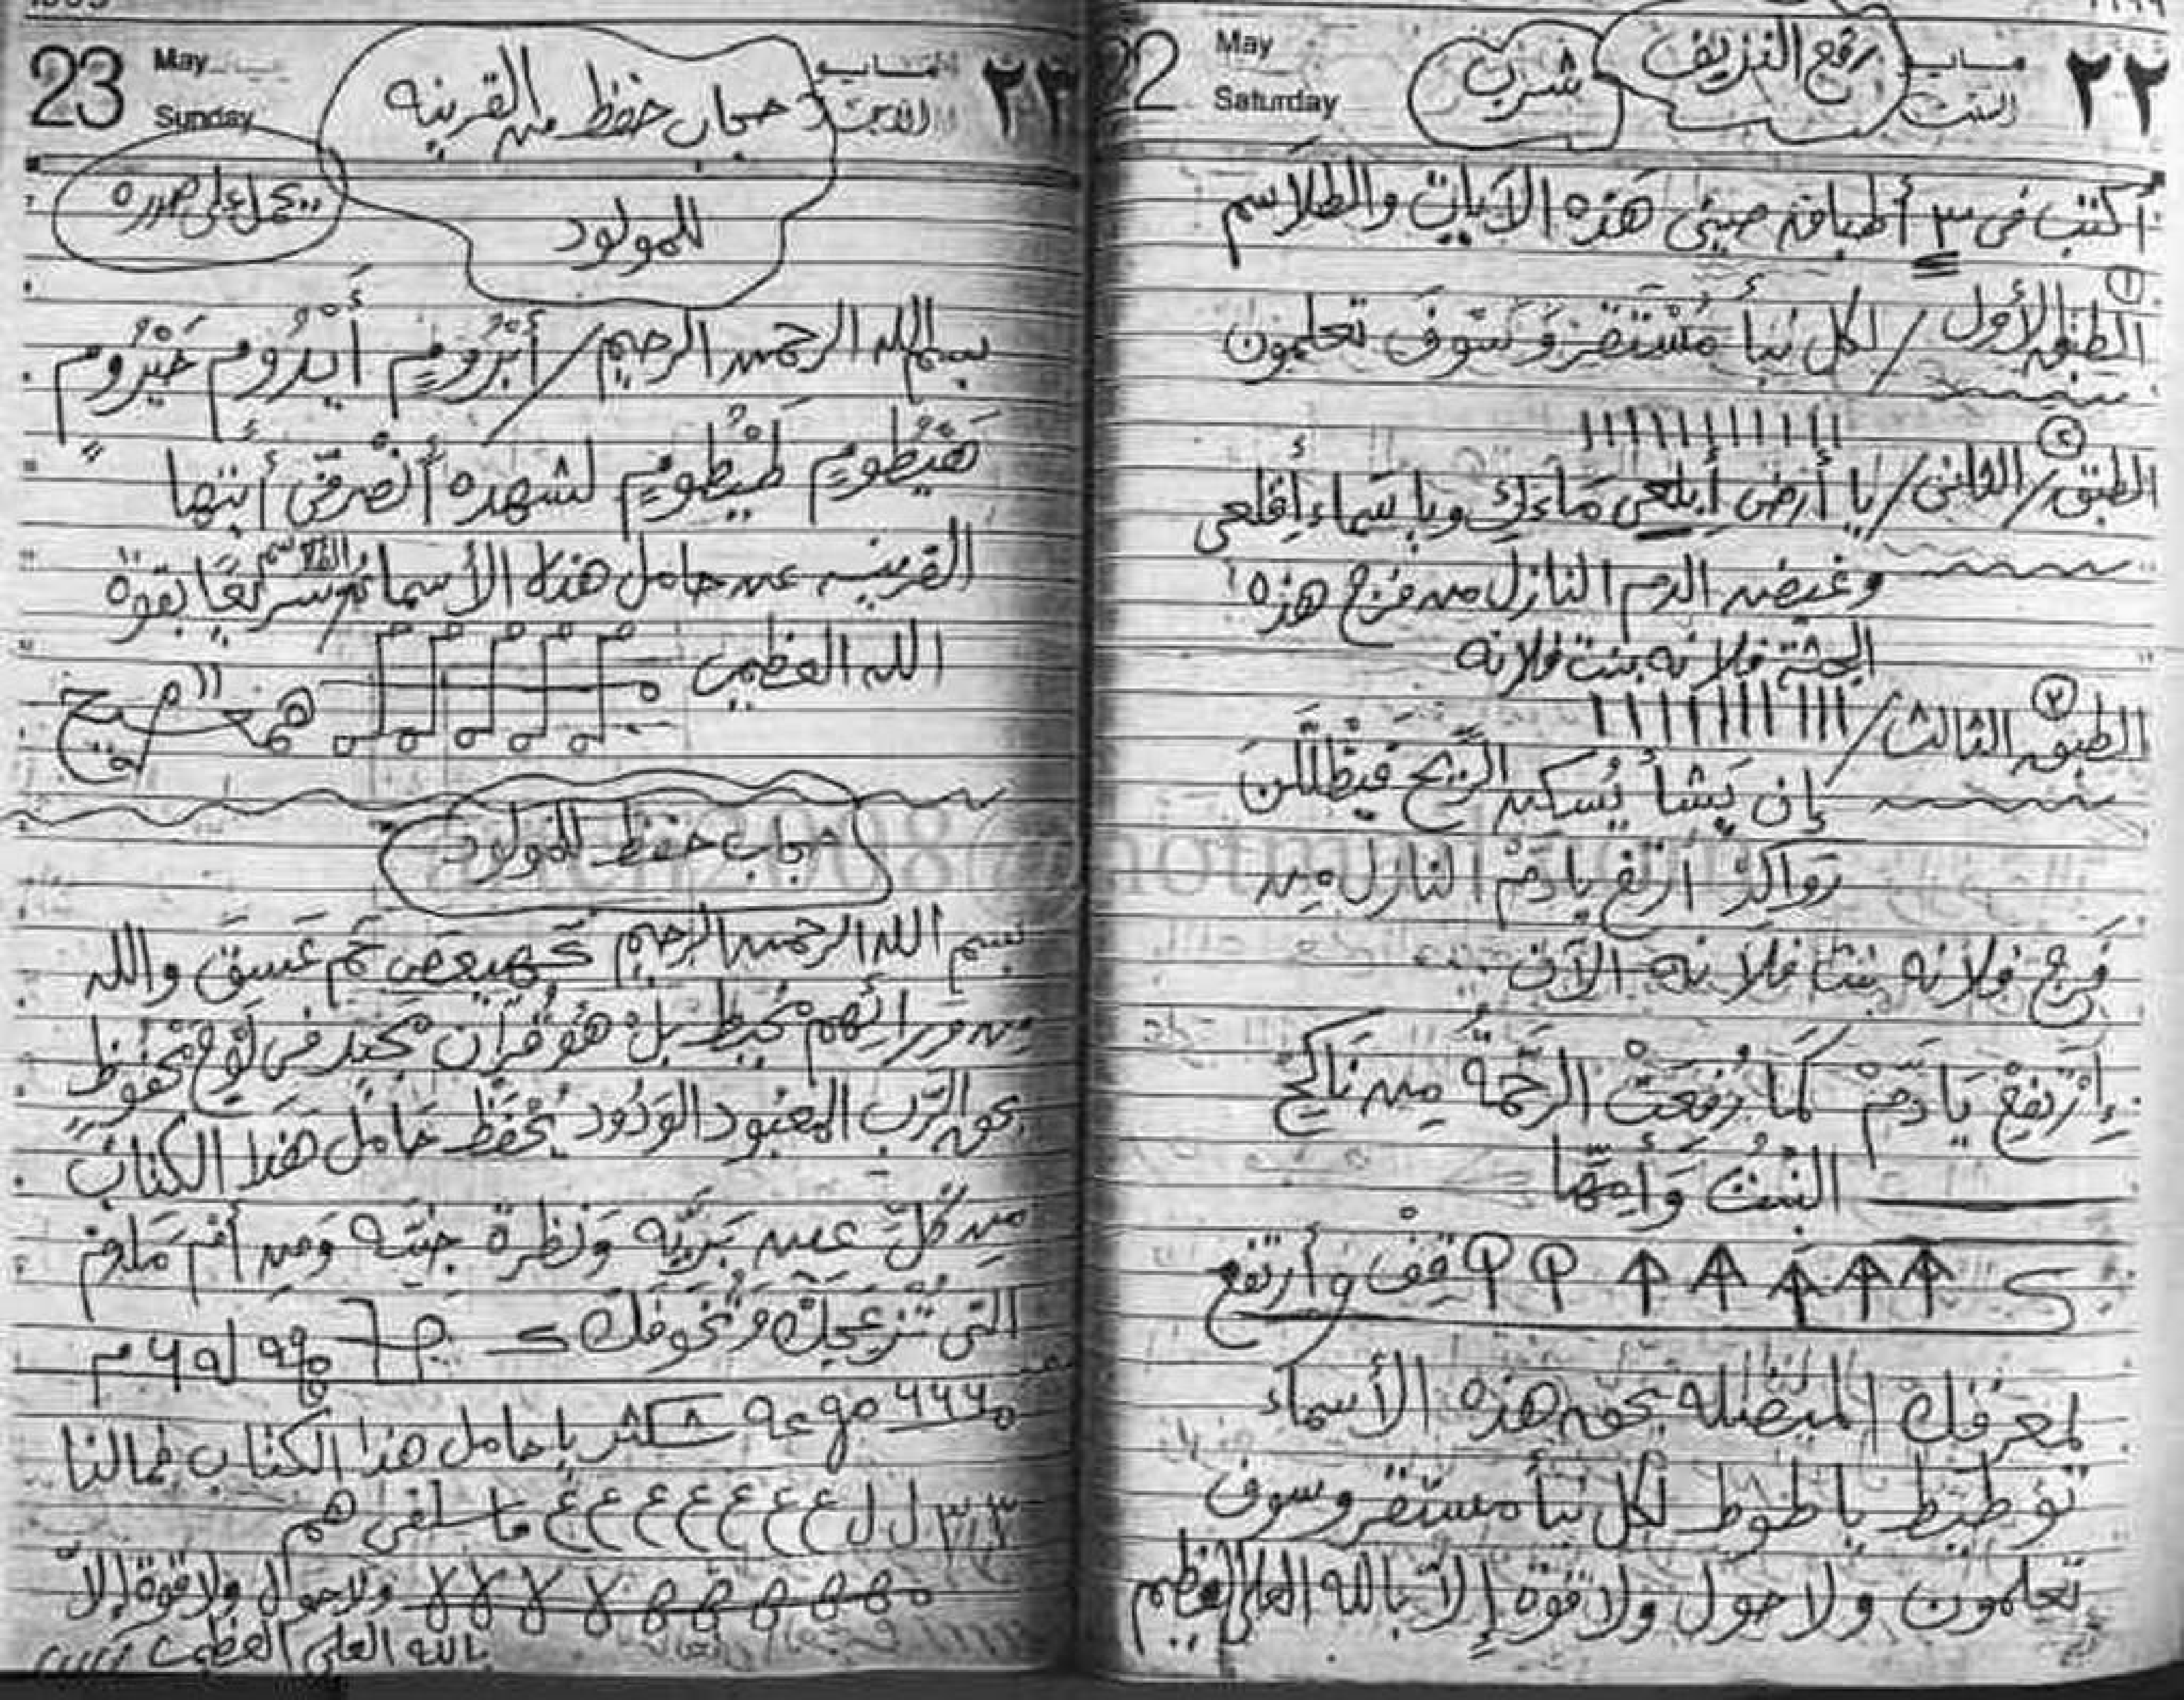 22
May
Saturday
مايو
السبت
٢٢
رفع النزيف
شرب
أكتب فى ٣ أطباق صينى هذه الآيات والطلاسم
١
الطبق الأول / لكل نبأ مُسْتَقر وَسَوفَ تعلمون
٢
الطبق الثانى / يا أرضِ أبلعى مَاءكِ ويا سَماء أقلعى
وغيض الدم النازل من فرج هذه
الجثة فلانه بنت فلانه
الطبق الثالث /
إن يَشأ يُسكن الرِّيحَ فَيَظْلَلْنَ
رَواكِدْ ارتفع يا دَمْ النازل من
فَرج فلانه بنت فلانه الآن
إرْتَفِعْ يَا دَمْ كَمَا رُفِعَتْ الرَحْمَةُ مِن نَاكِحْ
البِنْت وَأُمِّهَا
قِفْ وأرتفع
بحق هذه الأسماء
يا طوط لكل نبأ مستقر وسوف
تعلمون ولا حول ولا قوة إلا بالله العلى العظيم
23
May
Sunday
مايو
٢٣
حجاب حفظ من القرينه
للمولود
يحمل على صدره
بسم الله الرحمن الرحيم / أَبْرُوم أَيْدُوم خَيْرُوم
هَيْطُوم طَيْطُوم لشهده أنصرفى أيتها
القرينه عن حامل هذه الأسماء الطلاسم سريعًا بقوة
الله العظيم
حجاب حفظ للمولود
بسم الله الرحمن الرحيم كهيعص حم عسق والله
من ورائهم محيط بل هُوَ قُرآن مجيد فى لَوْح محفوظ
بحق الرَّب المعبود الوَدُود يحفَظ حَامل هَذا الكتاب
مِن كُلّ عين بَرِّيَّه وَنظرة جنيّه وَمِن أم مَلدم
التى تُزعِجكْ وَتُخَوفكْ
يا حامل هذا الكتاب فمالنا
ل ل ع ع ع ع ع ع ع
ولا حول ولا قوة إلا
بالله العلى العظيم